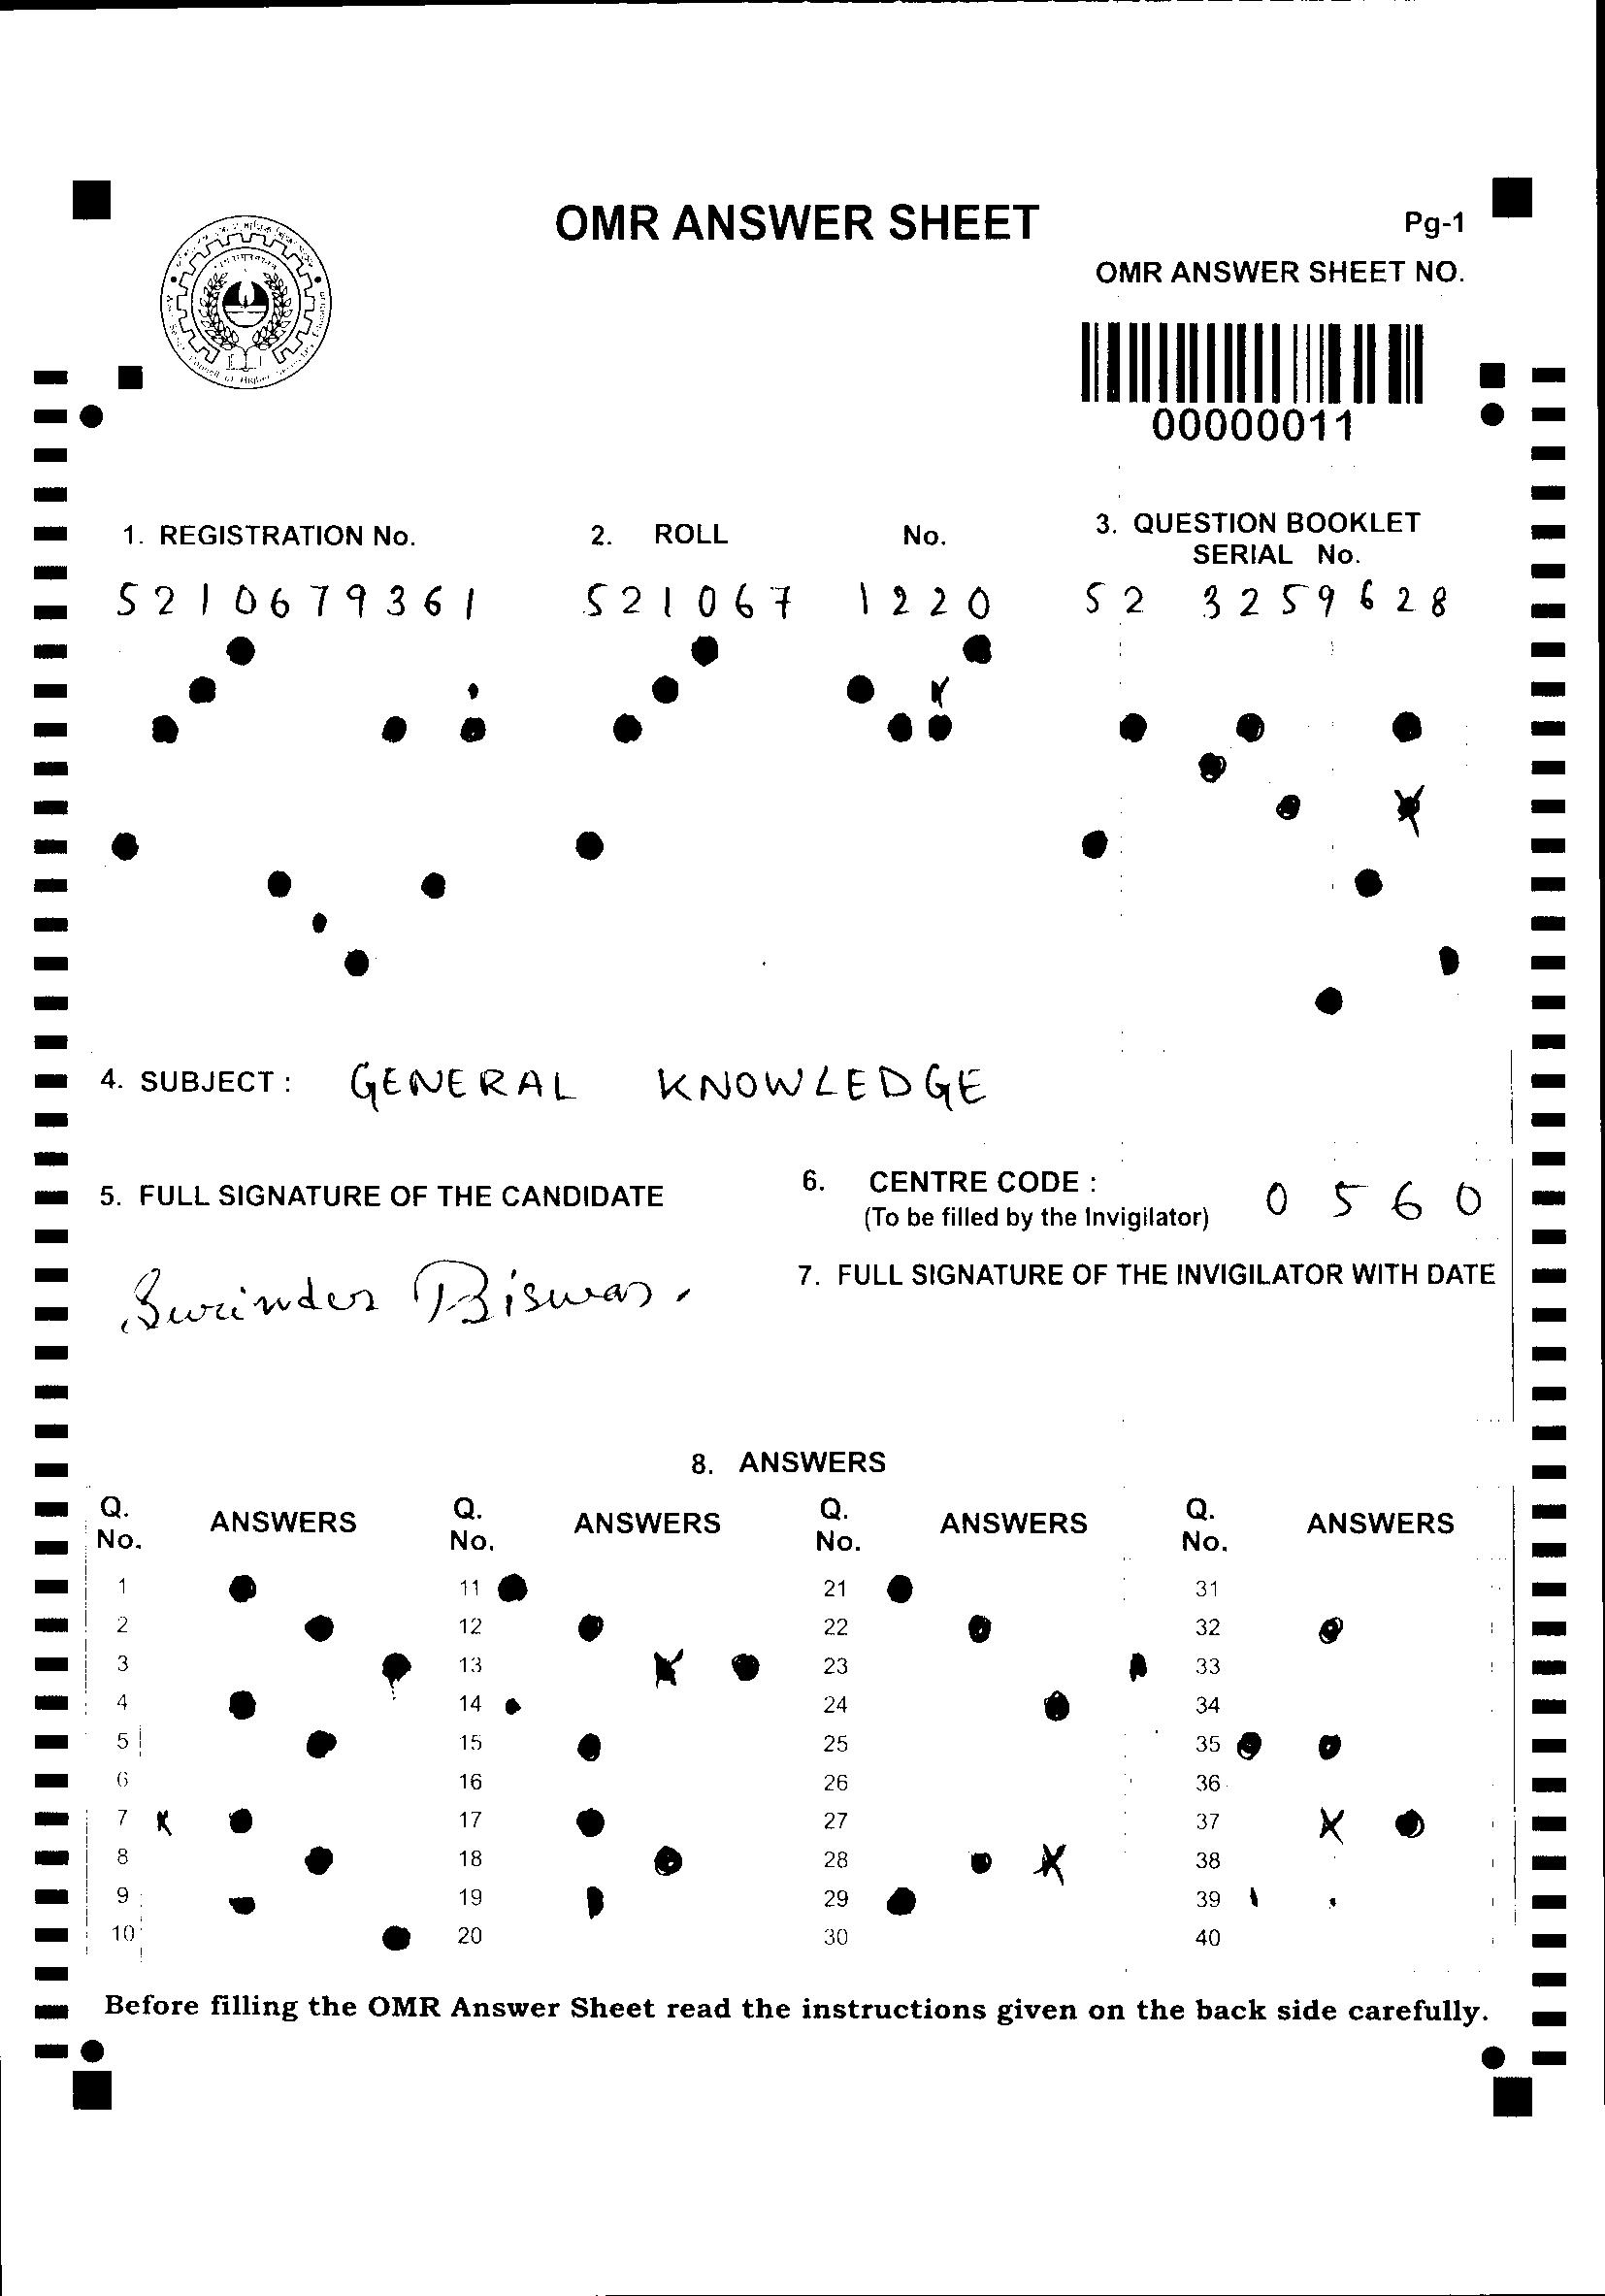 OMR ANSWER SHEET
Pg-1
OMR ANSWER SHEET NO.
00000011
1. REGISTRATION No.
2. ROLL No.
3. QUESTION BOOKLET
SERIAL No.
5210679361
521067 1220
52 3259628
4. SUBJECT : GENERAL KNOWLEDGE
5. FULL SIGNATURE OF THE CANDIDATE
6. CENTRE CODE : 0560
(To be filled by the Invigilator)
7. FULL SIGNATURE OF THE INVIGILATOR WITH DATE
Surinder Biswas.
8. ANSWERS
Q. Q. Q. Q.
No. ANSWERS No. ANSWERS No. ANSWERS No. ANSWERS
1 11 21 31
2 12 22 32
3 13 23 33
4 14 24 34
5 15 25 35
6 16 26 36
7 17 27 37
8 18 28 38
9 19 29 39
10 20 30 40
Before filling the OMR Answer Sheet read the instructions given on the back side carefully.